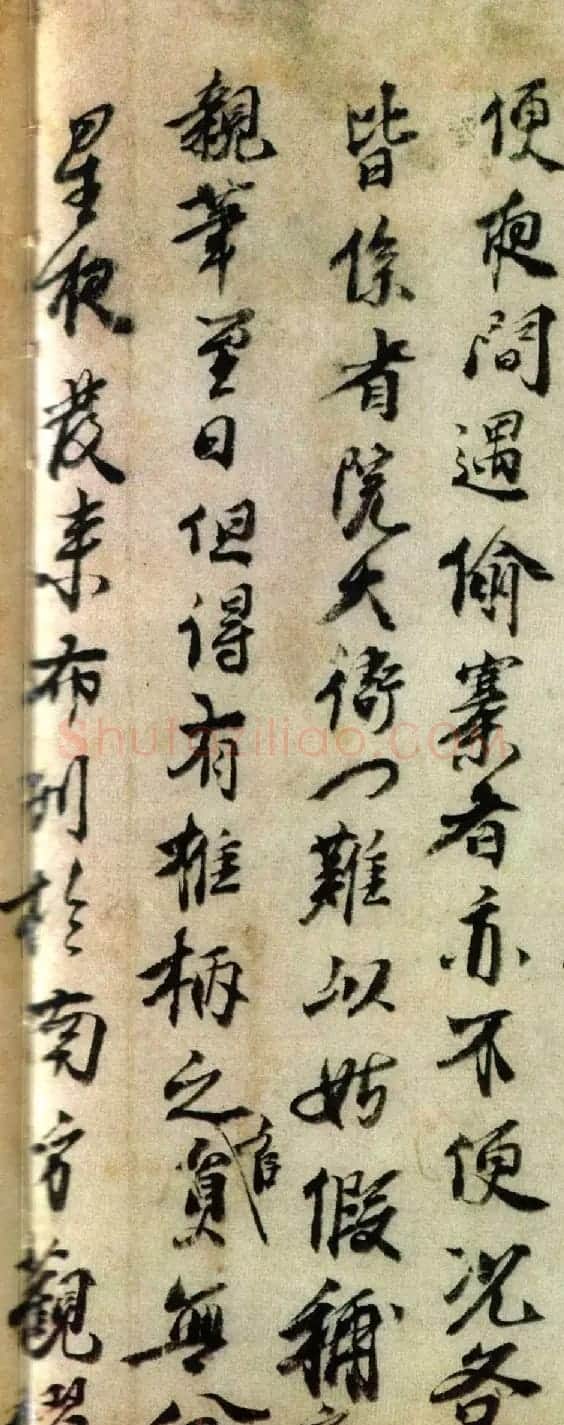 便夜間遇偷寨者亦不便況各
皆係省院大衙門難以妨假稱
親筆至日但得有權柄之員官無分
星夜發来布列於南方觀
Shufaziliao.com